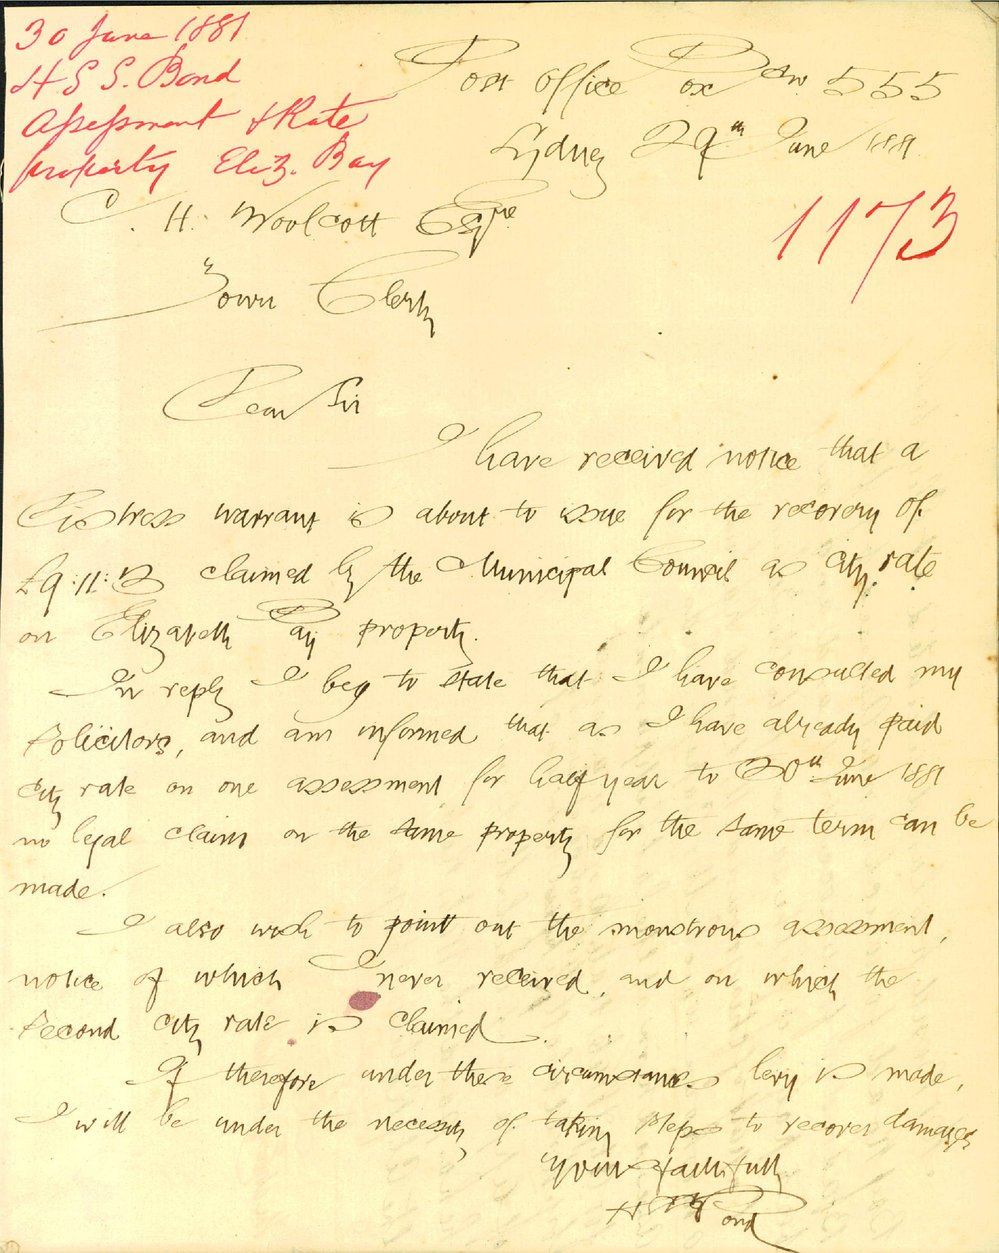 30 June 1881
H S S. Bond
Assessment & Rate
property Eliz. Bay
Post Office Box No 555
Sydney 29th June 1881
1173
C. H. Woolcott Esqre
Town Clerk
Dear Sir
I have received notice that a
Distress warrant is about to issue for the recovery of
£9:11:3 claimed by the Municipal Council as city rate
on Elizabeth Bay property.
In reply I beg to state that I have consulted my
Solicitors, and am informed that as I have already paid
city rate on one assessment for half year to 30th June 1881
no legal claim on the same property for the same term can be
made.
I also wish to point out the monstrous assessment,
notice of which I never received, and on which the
second city rate is claimed.
If therefore under these circumstances levy is made,
I will be under the necessity of taking steps to recover damages
Yours faithfully
Bond